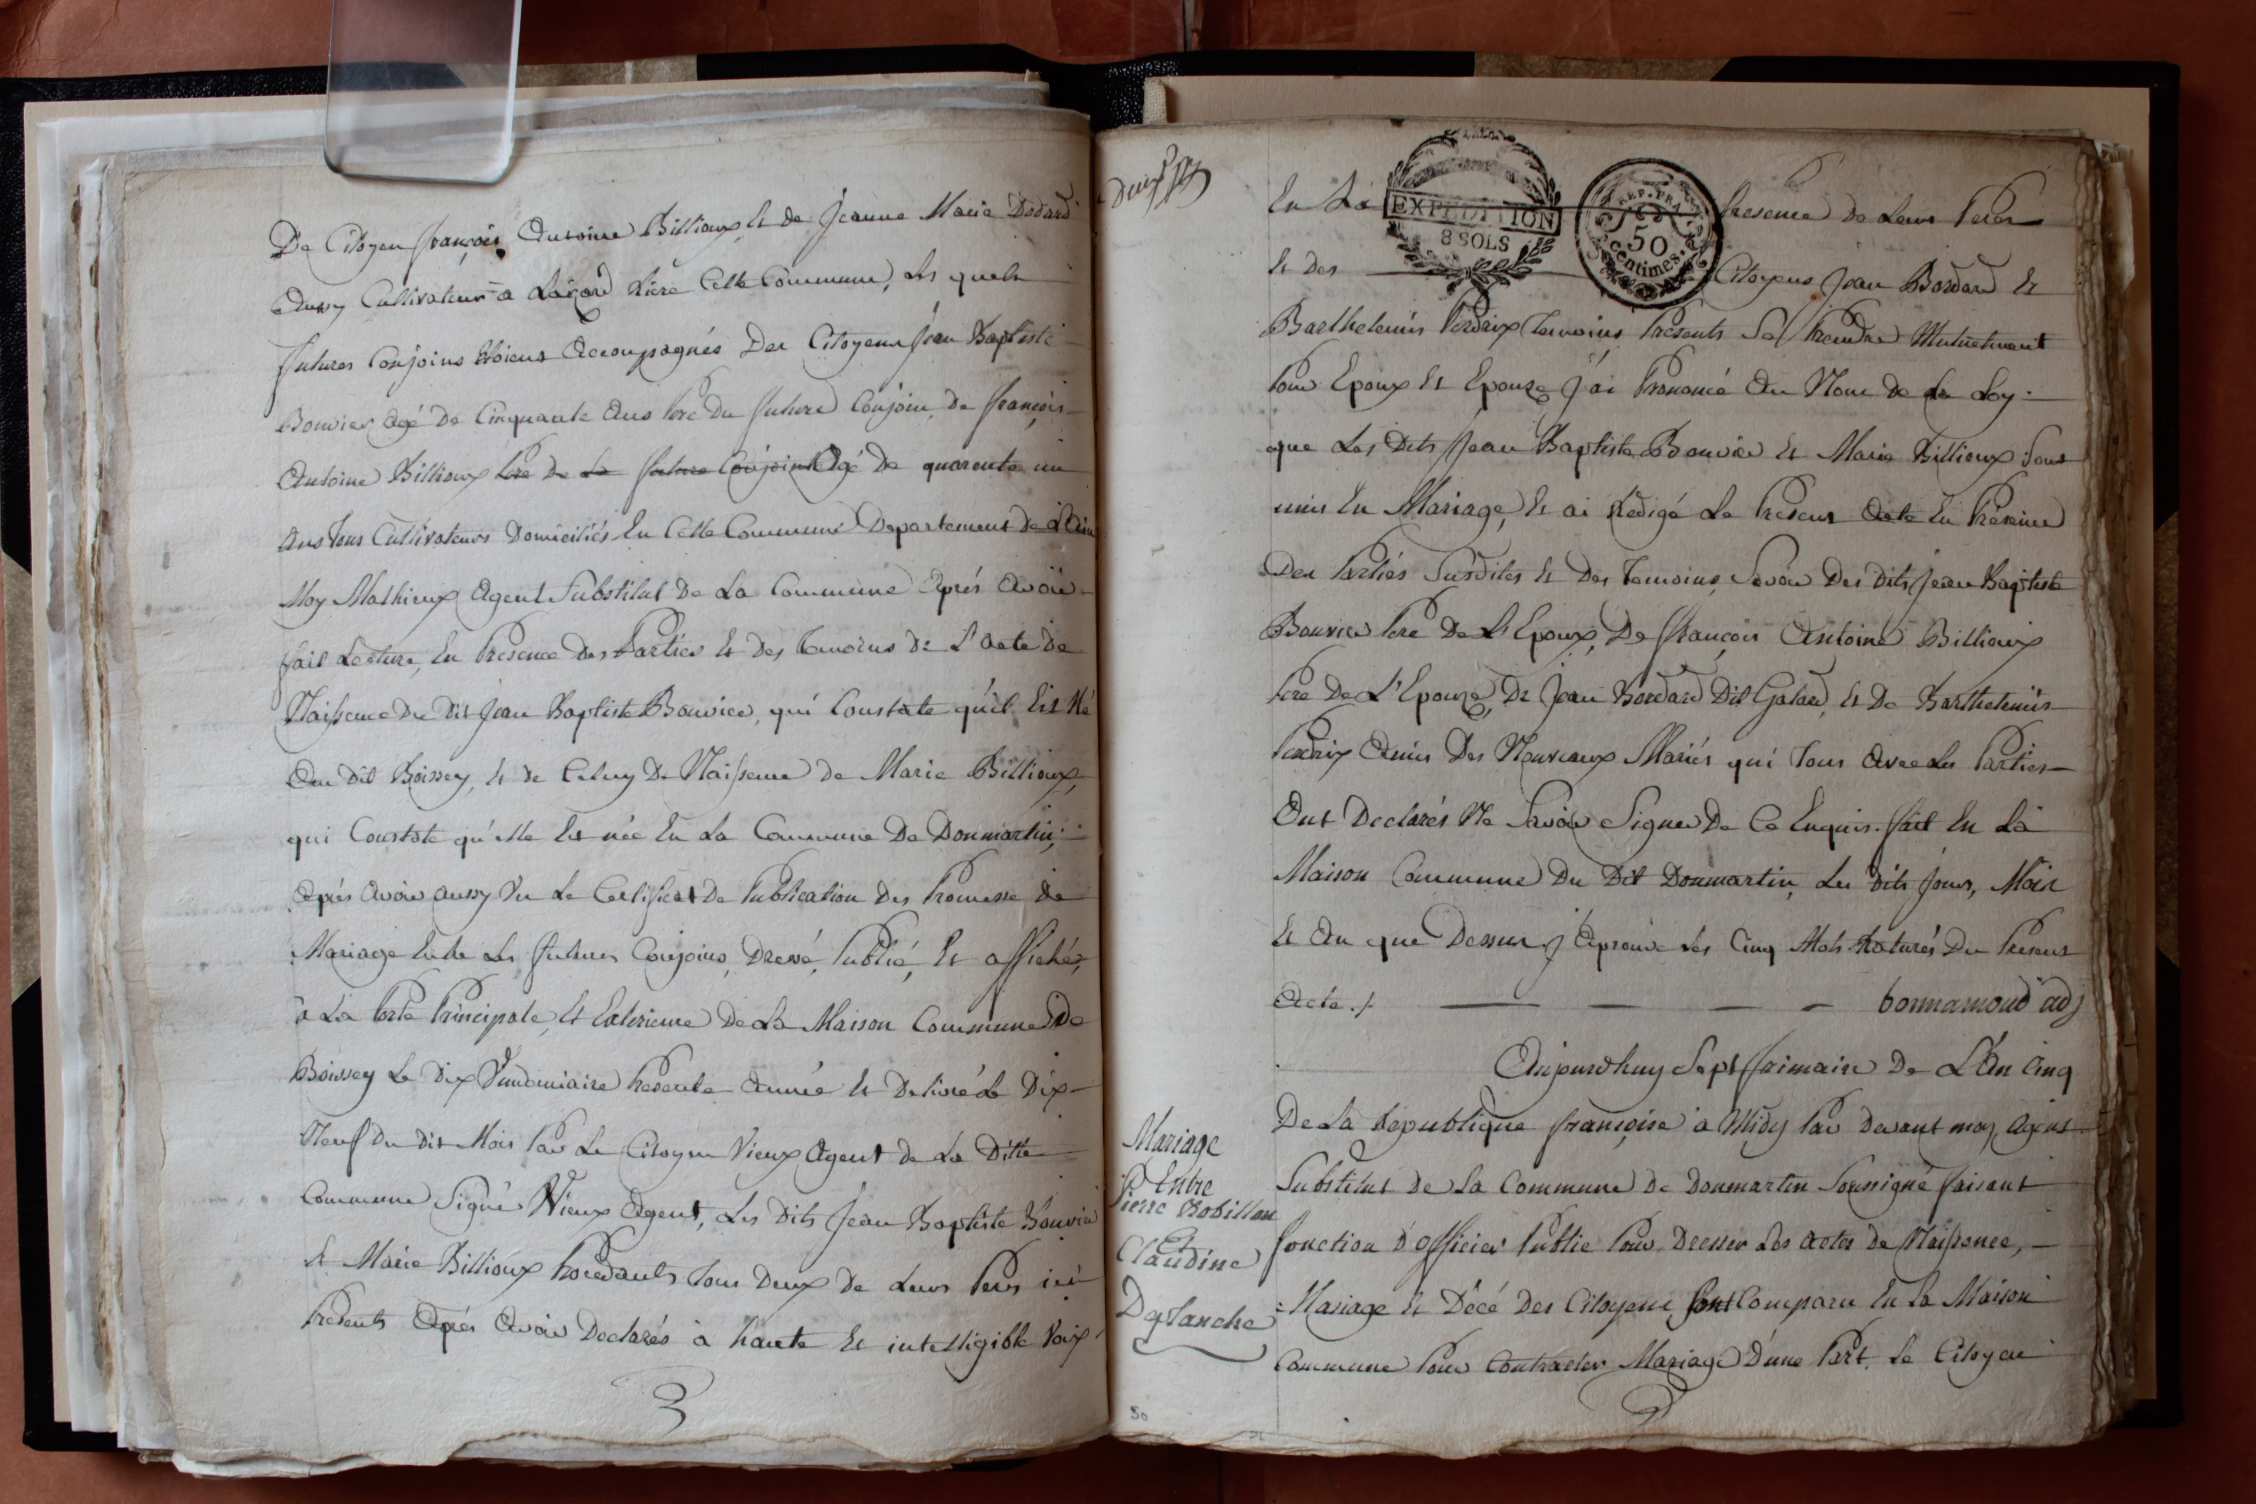 De Citoyen françois Antoine Billioux, Et de Jeanne Marie Dodard
Aussy Cultivateur à Riére Cette Commune, Les quels
futures Conjoins Etoient Accompagnés Des Citoyens Jean Baptiste
Bouvier Agé De Cinquante Ans Pere Du future Conjoin, De françois
Antoine Billioux Pere De La future Conjointe Agé De quarente un
Ans Tous Cultivateurs Domiciliés En Cette Commune Departement De L'Ain
Moy Mathieux Agent Substitut De La Commune Aprés Avoir
fait Lecture, En Presence Des Parties Et Des Temoins De L'Acte De
Naissence Du Dit Jean Baptiste Bouvier, qui Constate qu'il Est Né
Au Dit Boissey, Et de Celuy De Naissence de Marie Billioux,
qui Constate qu'elle Est née En La Commune De Donmartin;
Aprés Avoir aussy Vu Le Certificat De Publication Des Promesse de
Mariage Entre Les futures Conjoins, Dressé, Publié, Et affiché,
à La Porte Principale, Et Exterieure De La Maison Commune De
Boissey Le Dix Vendemiaire Presente Année Et Delivré Le Dix
Neuf Du Dit Mois Par Le Citoyen Vieux Agent de La Ditte
Commune Signé Vieux Agent, Les Dits Jean Baptiste Bouvier
Et Marie Billioux Procedants Tous Deux De Leurs Peres ici
Presents Aprés Avoir Declarés à haute Et intelligible Voix
En La Presence De Leurs Peres
EXPEDITION
8 SOLS
REP. FRA
50
Centimes.
Et Des Citoyens Jean Bordard Et
Barthelemis Perdrix Temoins Presents Se Prendre Mutuelment
Pour Epoux Et Epouze J'ai Prononcé Au Nom De La Loy
que Les Dits Jean Baptiste Bouvier Et Marie Billioux Sont
unis En Mariage, Et ai Redigé Le Present Acte En Présence
Des Parties Susdites Et Des Temoins, Savoir Des Dits Jean Baptiste
Bouvier Pere De L'Epoux, De françois Antoine Billioux
Pere De L'Epouze, De Jean Bordard Dit Galard, Et De Barthelemis
Perdrix Amis Des Nouveaux Mariés qui Tous Avec Les Parties
Ont Declarés Ne Savoir Signer De Ce Enquis. fait En La
Maison Commune Du Dit Donmartin, Les Dits Jour, Mois
Et An que Dessus J'Aprouve Les Cinq Mots Raturés Du Present
Acte ./. bonnamoud adj
Aujourdhuy Sept frimaire De L'An Cinq
De La République françoise à Midy Par Devant moy Agent
Mariage
Entre
Pierre Robillon
Et
Claudine
Deplanche
Substitut de La Commune de Donmartin Soussigné faisant
fonction D'officier Public Pour Dresser Les Actes de Naissence,
Mariage Et Décé Des Citoyens sont Comparu En La Maison
Commune Pour Contracter Mariage D'une Part, Le Citoyen
50